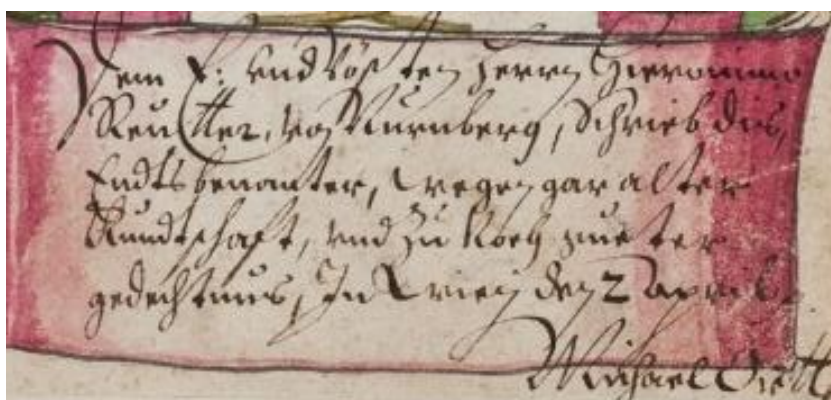 Dem E: und Vösten Herrn Hieronimo
Reutter, von Nurnberg, Schrieb dis,
Endtsbenanter, wegen gar alter
Kundtschaft, und zu Noch gueter
gedechtnus, In Wien den 2 April.
Michael